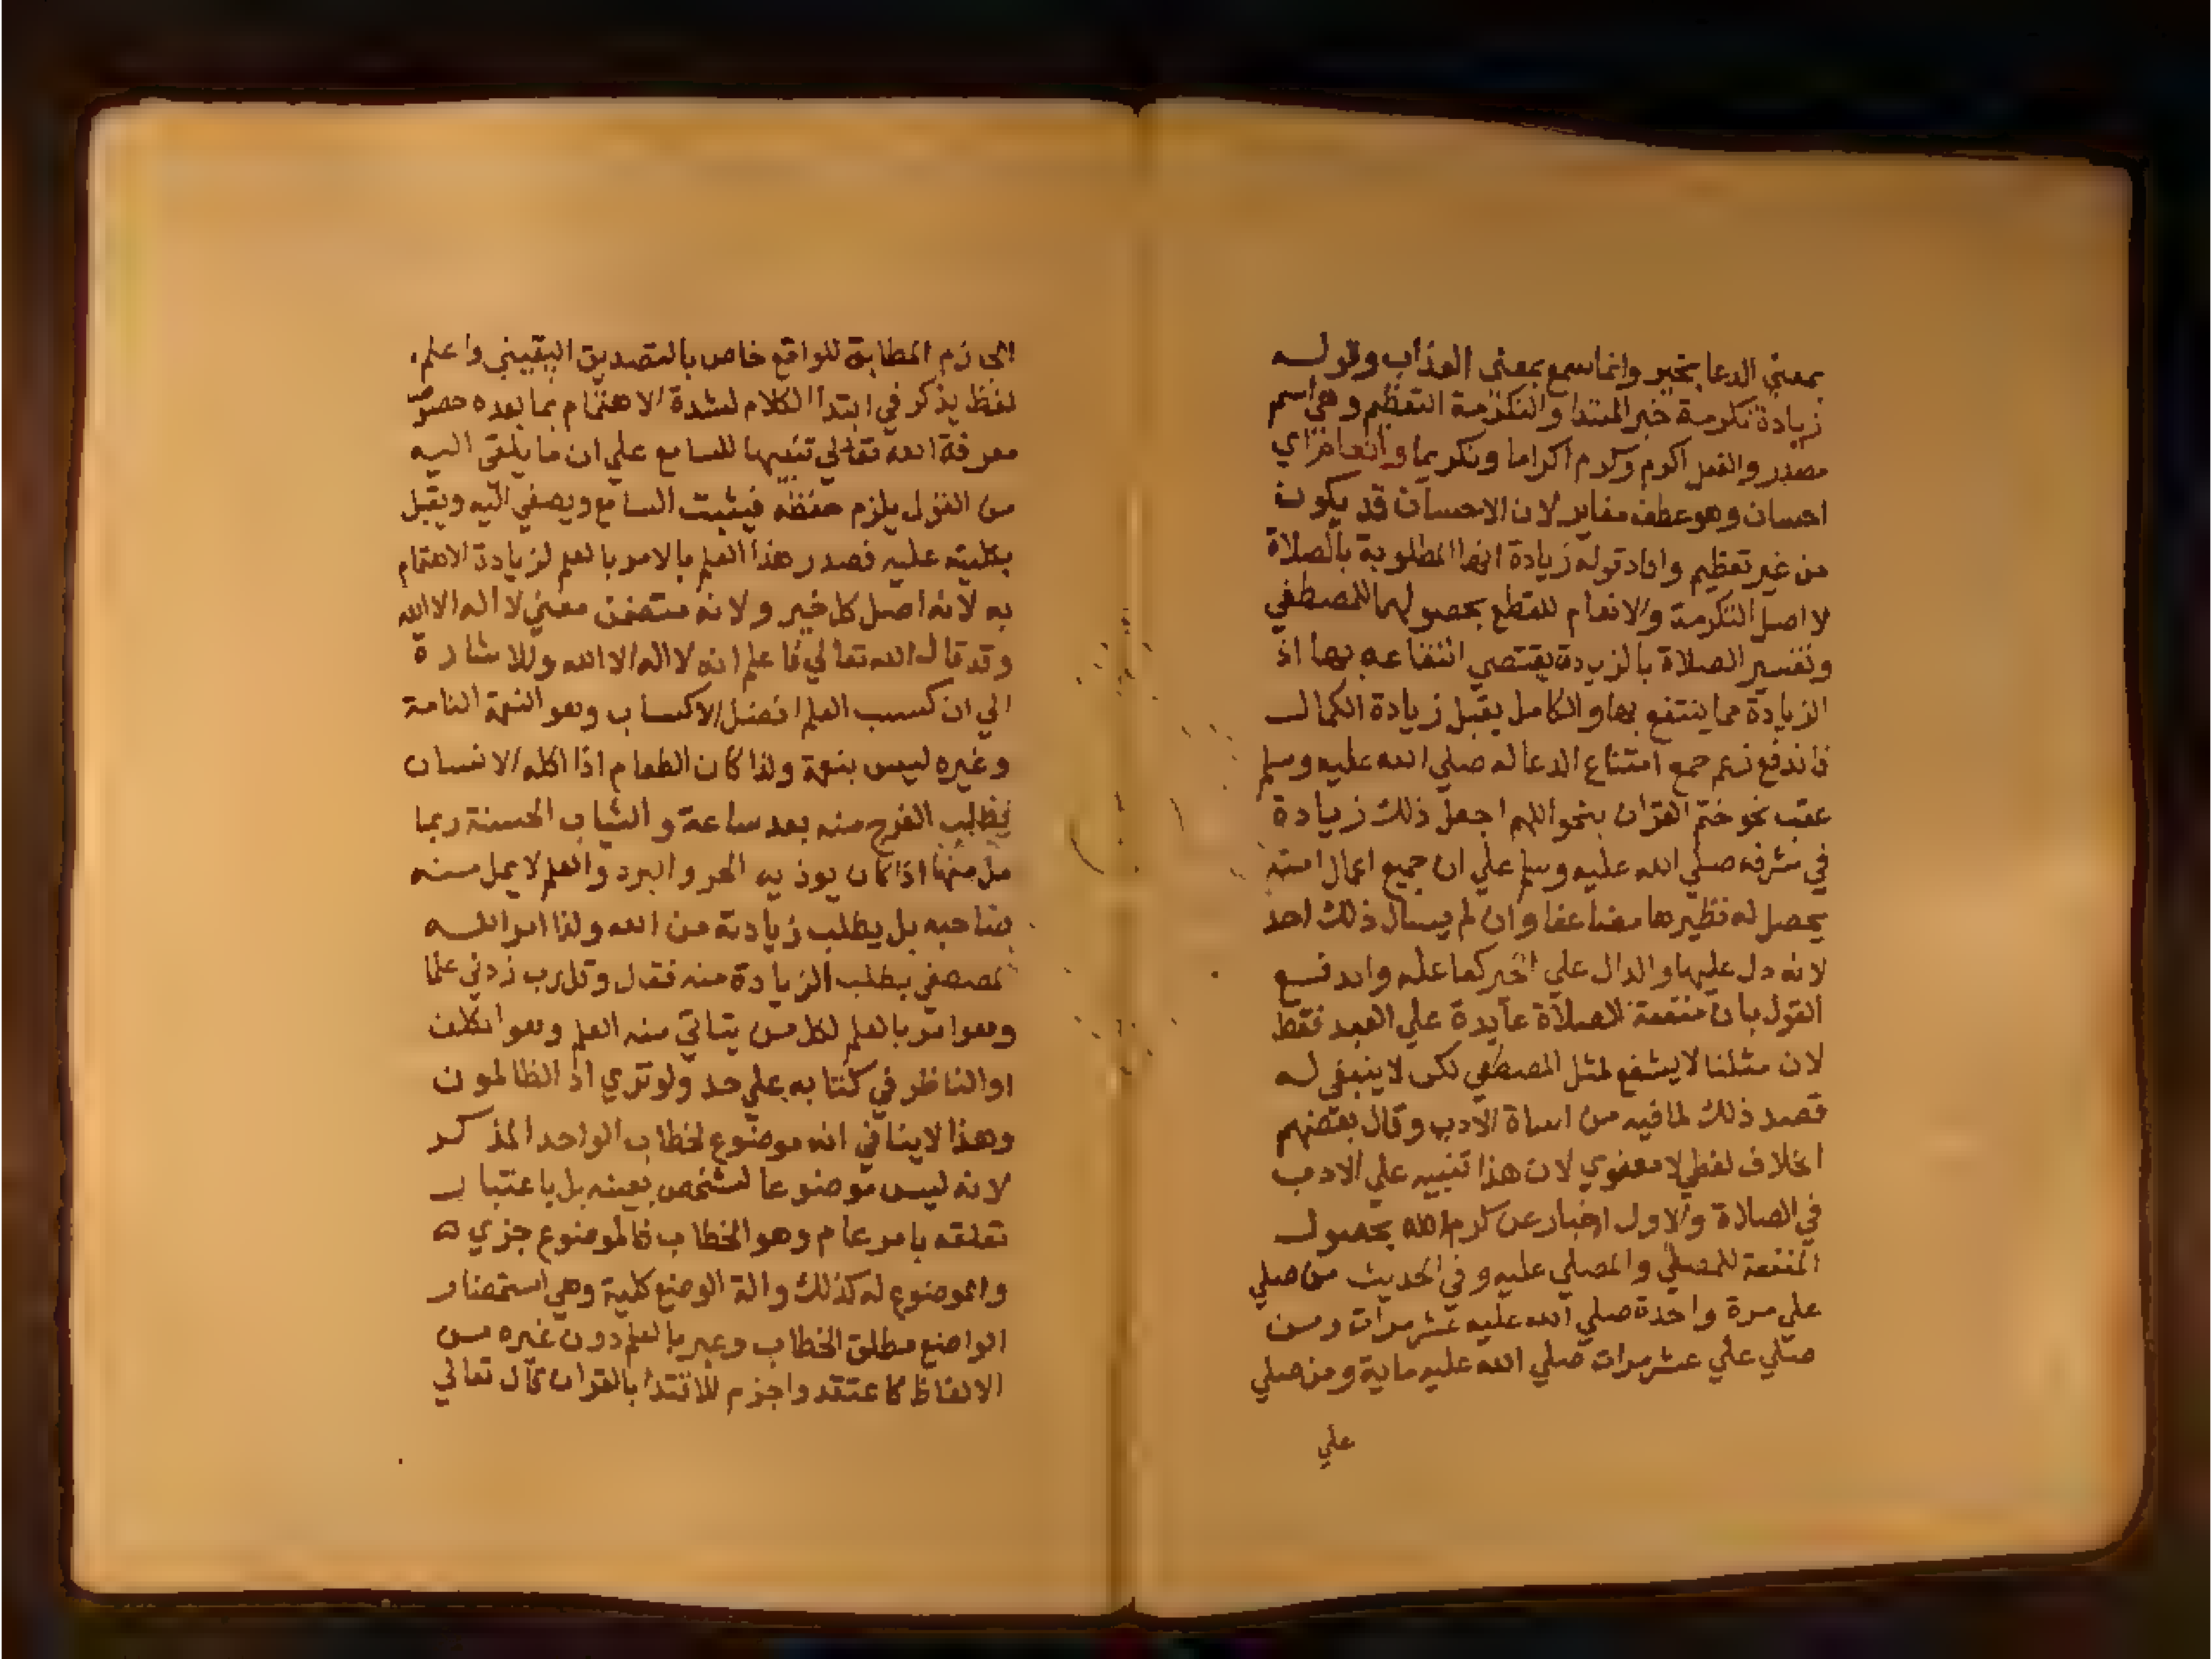 بمعني الدعا بخير وانما سمع بمعني العذاب وقوله
زيادة تكرمة خبر المبتدا والتكرمة التعظيم وهي اسم
مصدر والفعل اكرم وكرم اكراما وتكريما وانعام اي
احسان وهو عطف مغاير لان الاحسان قد يكون
من غير تعظيم وافاد قوله زيادة انها المطلوبة بالصلاة
لا اصل التكرمة والانعام للقطع بحصولهما للمصطفي
وتفسير الصلاة بالزيادة يقتضي انتفاعه بها اذ
الزيادة مما ينتفع بها والكامل يقبل زيادة الكمال
فاندفع زعم جمع امتناع الدعا له صلي الله عليه وسلم
عقب نحو ختم القران بنحو اللهم اجعل ذلك زيادة
في شرفه صلي الله عليه وسلم علي ان جميع اعمال امته
يحصل له نظيرها مضاعفا وان لم يسال ذلك احد
لانه دل عليها والدال علي الخير كفاعله واندفع
القول بان منفعة الصلاة عايدة علي العبد فقط
لان مثلنا لا يشفع لمثل المصطفي لكن لا ينبغي له
قصد ذلك لما فيه من اساة الادب وقال بعضهم
الخلاف لفظي لا معنوي لان هذا تنبيه علي الادب
في الصلاة والاول اخبار عن كرم الله بحصول
المنفعة للمصلي والمصلي عليه وفي الحديث من صلي
علي مرة واحدة صلي الله عليه عشر مرات ومن
صلي علي عشر مرات صلي الله عليه ماية ومن صلي
علي
الجازم المطابق للواقع خاص بالتصديق اليقيني واعلم
لفظ يذكر في ابتدا الكلام لشدة الاهتمام بما بعده
معرفة الله تعالي تنبيها للسامع علي ان ما يلقي اليه
من القول يلزم حفظه فيثبت السامع ويصغي اليه ويقبل
بكليته عليه فصدر هذا العلم بالامر بالعلم لزيادة الاهتمام
به لانه اصل كل خير ولانه متضمن معني لا اله الا الله
وقد قال الله تعالي فاعلم انه لا اله الا الله وللاشارة
الي ان كسب العلم افضل الاكساب وهو النهمة التامة
وغيره ليس بنهمة ولذا كان الطعام اذا اكله الانسان
يطلب الفرج منه بعد ساعة والثياب الحسنة ربما
مل منها اذا كان يوذيه الحر والبرد والعلم لا يمل منه
صاحبه بل يطلب زيادته من الله ولذا امر الله
لمصطفي بطلب الزيادة منه فقال وقل رب زدني علما
وهو امر بالعلم لكل من يتاتي منه العلم وهو المكلف
او الناظر في كتابه علي حد ولو تري اذ الظالمون
وهذا لا ينافي انه موضوع لخطاب الواحد المذكر
لانه ليس موضوعا لشخص بعينه بل باعتبار
تعلقه بامر عام وهو الخطاب فالموضوع جزي
والموضوع له كذلك والة الوضع كلية وهي استحضار
الواضع مطلق الخطاب وعبر بالعلم دون غيره من
الالفاظ كاعتقد واجزم للاقتدا بالقران قال تعالي